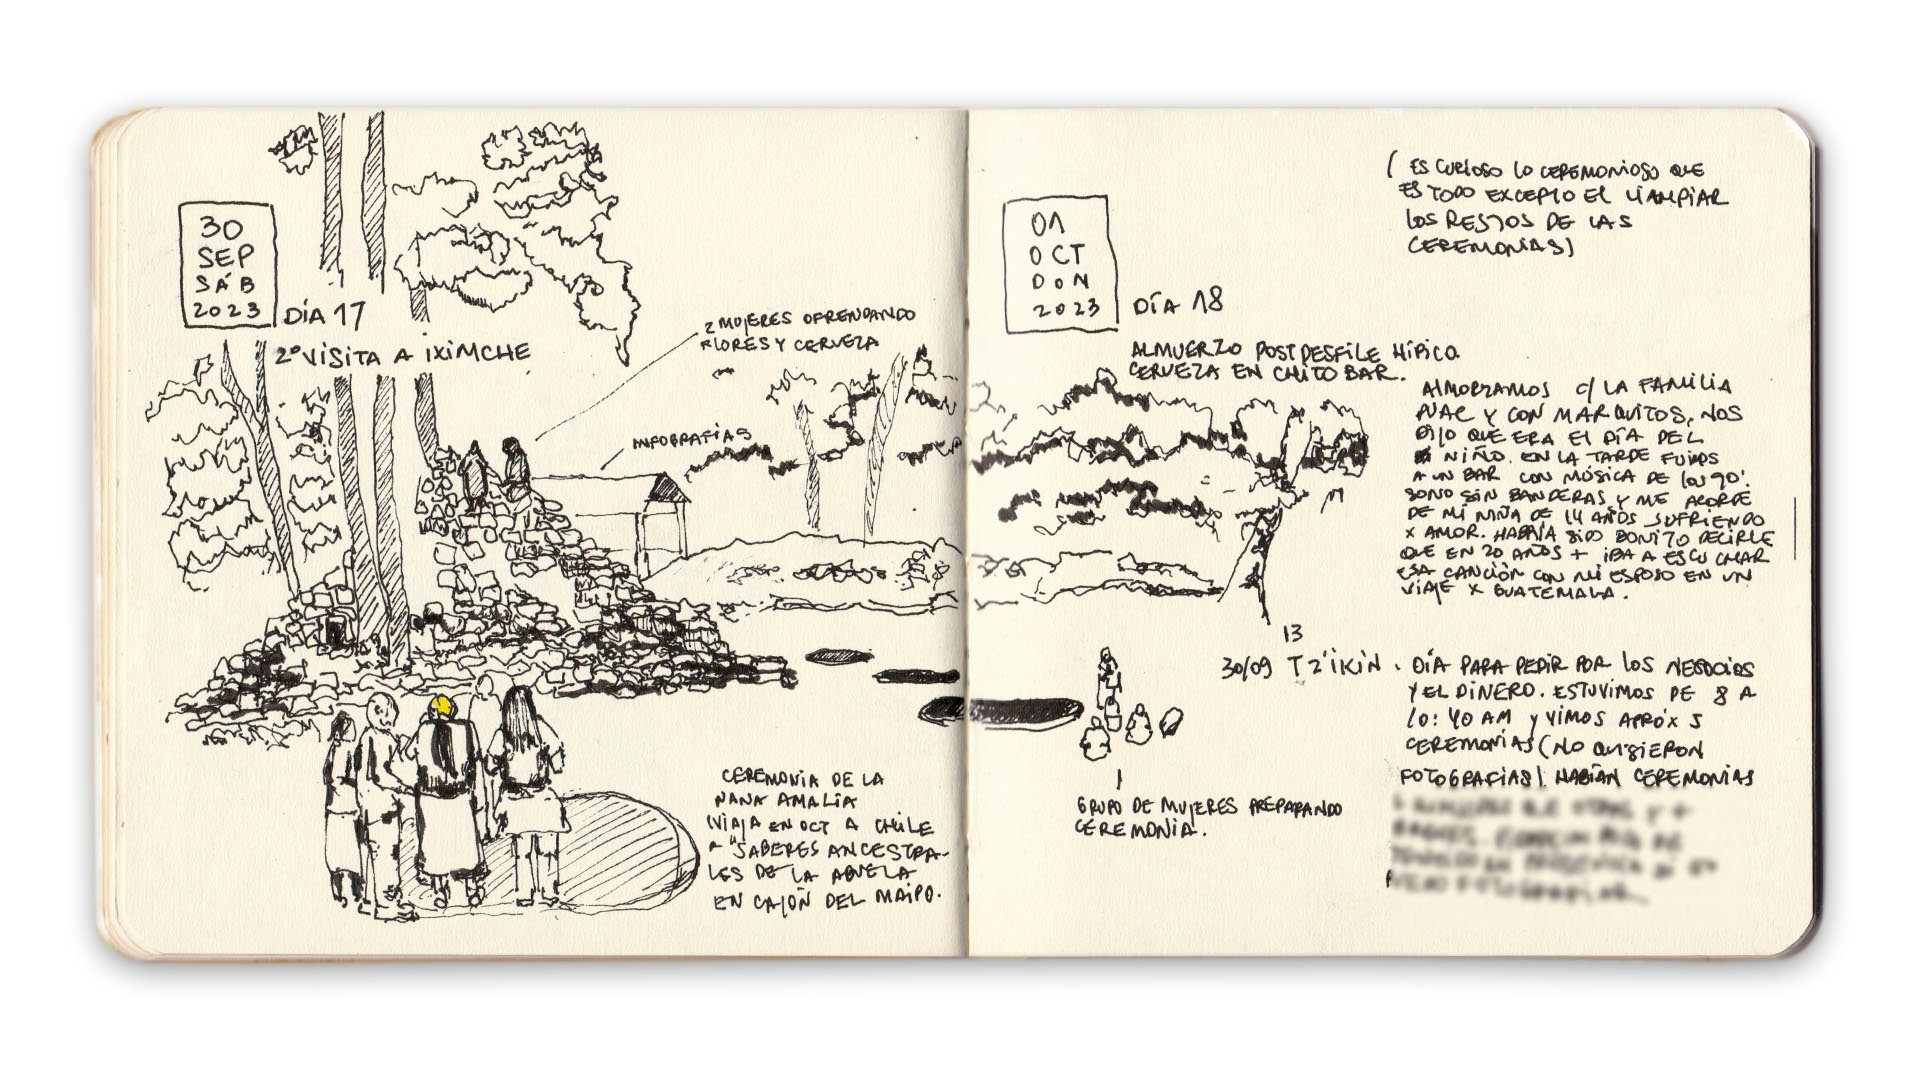 30
SEP
SÁB
2023
DÍA 17
2º VISITA A IXIMCHE
2 MUJERES OFRENDANDO
FLORES Y CERVEZA
INFOGRAFÍAS
CEREMONIA DE LA
NANA AMALIA
(VIAJA EN OCT A CHILE
A "SABERES ANCESTRA-
LES DE LA ABUELA
EN CAJÓN DEL MAIPO.
01
OCT
DOM
2023
DÍA 18
ALMUERZO POST DESFILE HÍPICO
CERVEZA EN CHITO BAR.
(ES CURIOSO LO CEREMONIOSO QUE
ES TODO EXCEPTO EL LIMPIAR
LOS RESTOS DE LAS
CEREMONIAS)
ALMORZAMOS C/ LA FAMILIA
Y CON MARQUITOS, NOS
DIJO QUE ERA EL DÍA DEL
NIÑO. EN LA TARDE FUIMOS
A UN BAR CON MÚSICA DE LOS 90'.
SONO SIN BANDERAS Y ME ACORDE
DE MI NIÑA DE 14 AÑOS SUFRIENDO
X AMOR. HABRÍA SIDO BONITO DECIRLE
QUE EN 20 AÑOS + IBA A ESCUCHAR
ESA CANCIÓN CON MI ESPOSO EN UN
VIAJE X GUATEMALA.
13
30/09 TZ'IKIN. DÍA PARA PEDIR POR LOS NEGOCIOS
Y EL DINERO. ESTUVIMOS DE 8 A
10:40 AM Y VIMOS APRÓX 5
CEREMONIAS (NO QUISIERON
FOTOGRAFÍAS). HABÍAN CEREMONIAS
GRUPO DE MUJERES PREPARANDO
CEREMONIA.